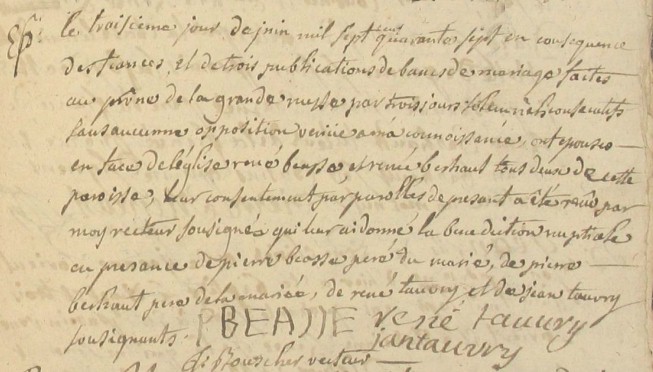 Esp. le troisieme jour de juin mil sept cens quarante sept en consequence
des fiances, et de trois publications de bancs de mariage faites
au prône de la grande messe par trois jours solemniels consecutifs
sans aucunne opposition venüe a ma connoissance, ont epousé
en face de l'église rené beasse, et renée berhaut tous deux de cette
paroisse, leur consentement par parolles de presant a été reçu par
moy recteur soussigné qui leur ai donné la benediction nuptiale
en presance de pierre beasse pere du marié, de pierre
berhaut pere de la mariée, de rené tauvry et de jean tauvry
sousignants. P BEASSE rené tauvry
jan tauvry
recteur